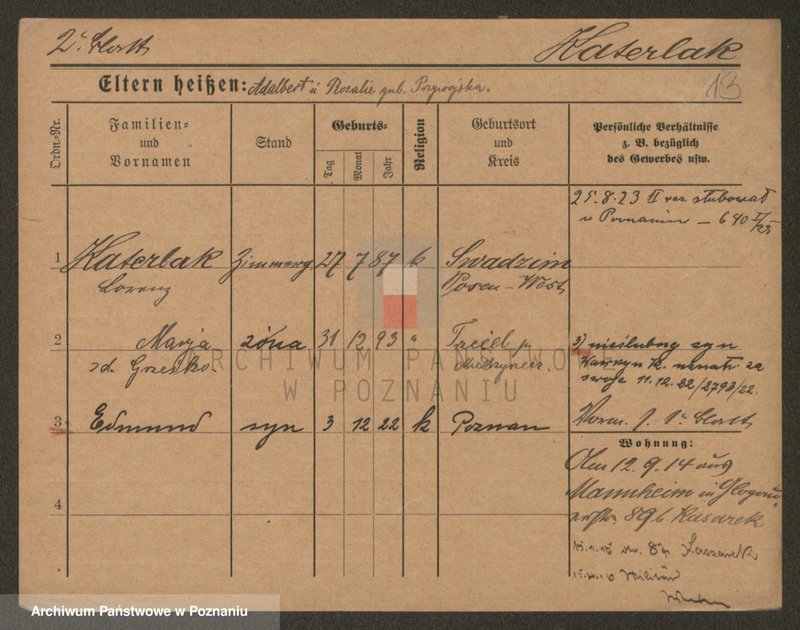 2. Blatt
Katerlak
Eltern heißen: Adalbert u Rozalie geb. Przywojska.
13
Ordn.-Nr.
Familien-
und
Vornamen
Stand
Geburts-
Tag
Monat
Jahr
Religion
Geburtsort
und
Kreis
Persönliche Verhältnisse
z. B. bezüglich
des Gewerbes usw.
25.8.23 II raz slubował
w Poznaniu — 640 II/23
1 Katerlak Zimmerg. 27 7 87 k Swadzim
Lorenz Posen-West
2 Marja żona 31 12 93 " Trzciel p.
zd. Grzesko Międzyrzecz
3) nieślubny syn
Wawrzyn K. uznał za
swoje 11.12.22/2798/22.
3 Edmund syn 3 12 22 k Poznan
Vorm. 1. Blatt
Wohnung:
Am 12.9.14 aus
Mannheim in Glogau
89 b. Kasarek
4
8
Militär
ARCHIWUM PAŃSTWOWE
W POZNANIU
Archiwum Państwowe w Poznaniu